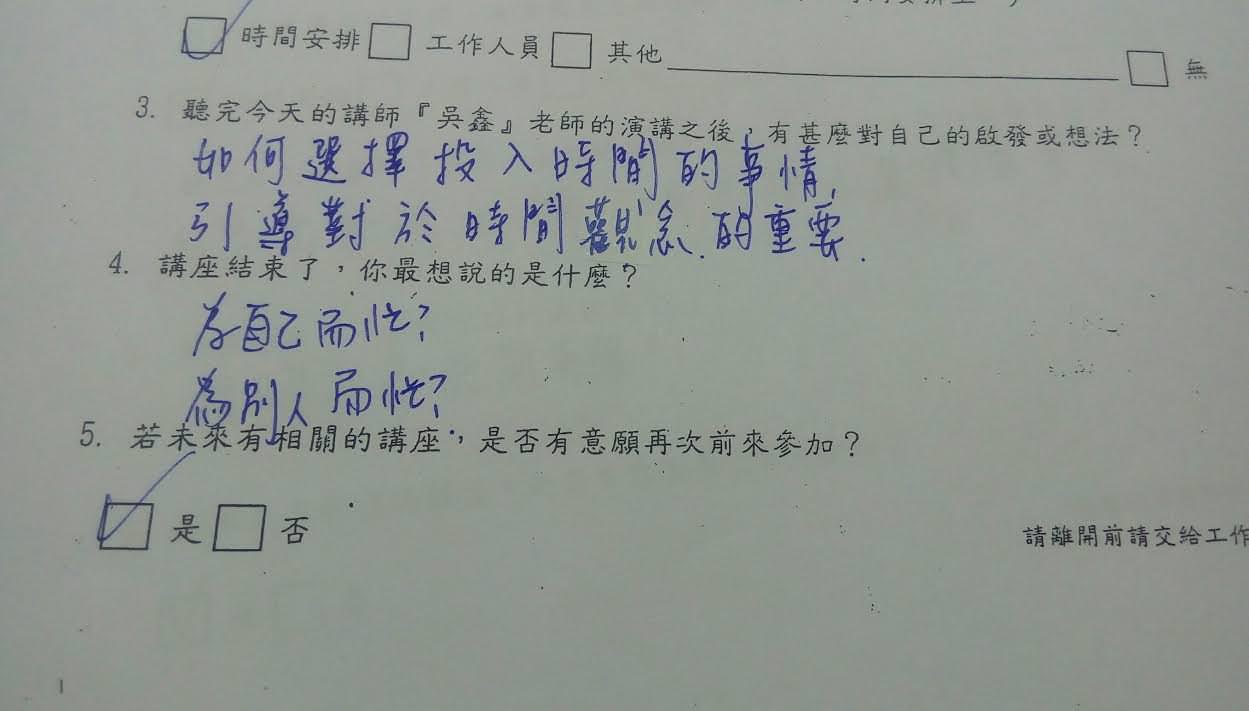 ☑ 時間安排 □ 工作人員 □ 其他 ＿＿＿＿＿＿ □ 無
3. 聽完今天的講師『吳鑫』老師的演講之後，有甚麼對自己的啟發或想法？
如何選擇投入時間的事情,
引導對於時間觀念的重要.
4. 講座結束了，你最想說的是什麼？
為自己而忙?
為別人而忙?
5. 若未來有相關的講座，是否有意願再次前來參加？
☑ 是 □ 否
請離開前請交給工作
1